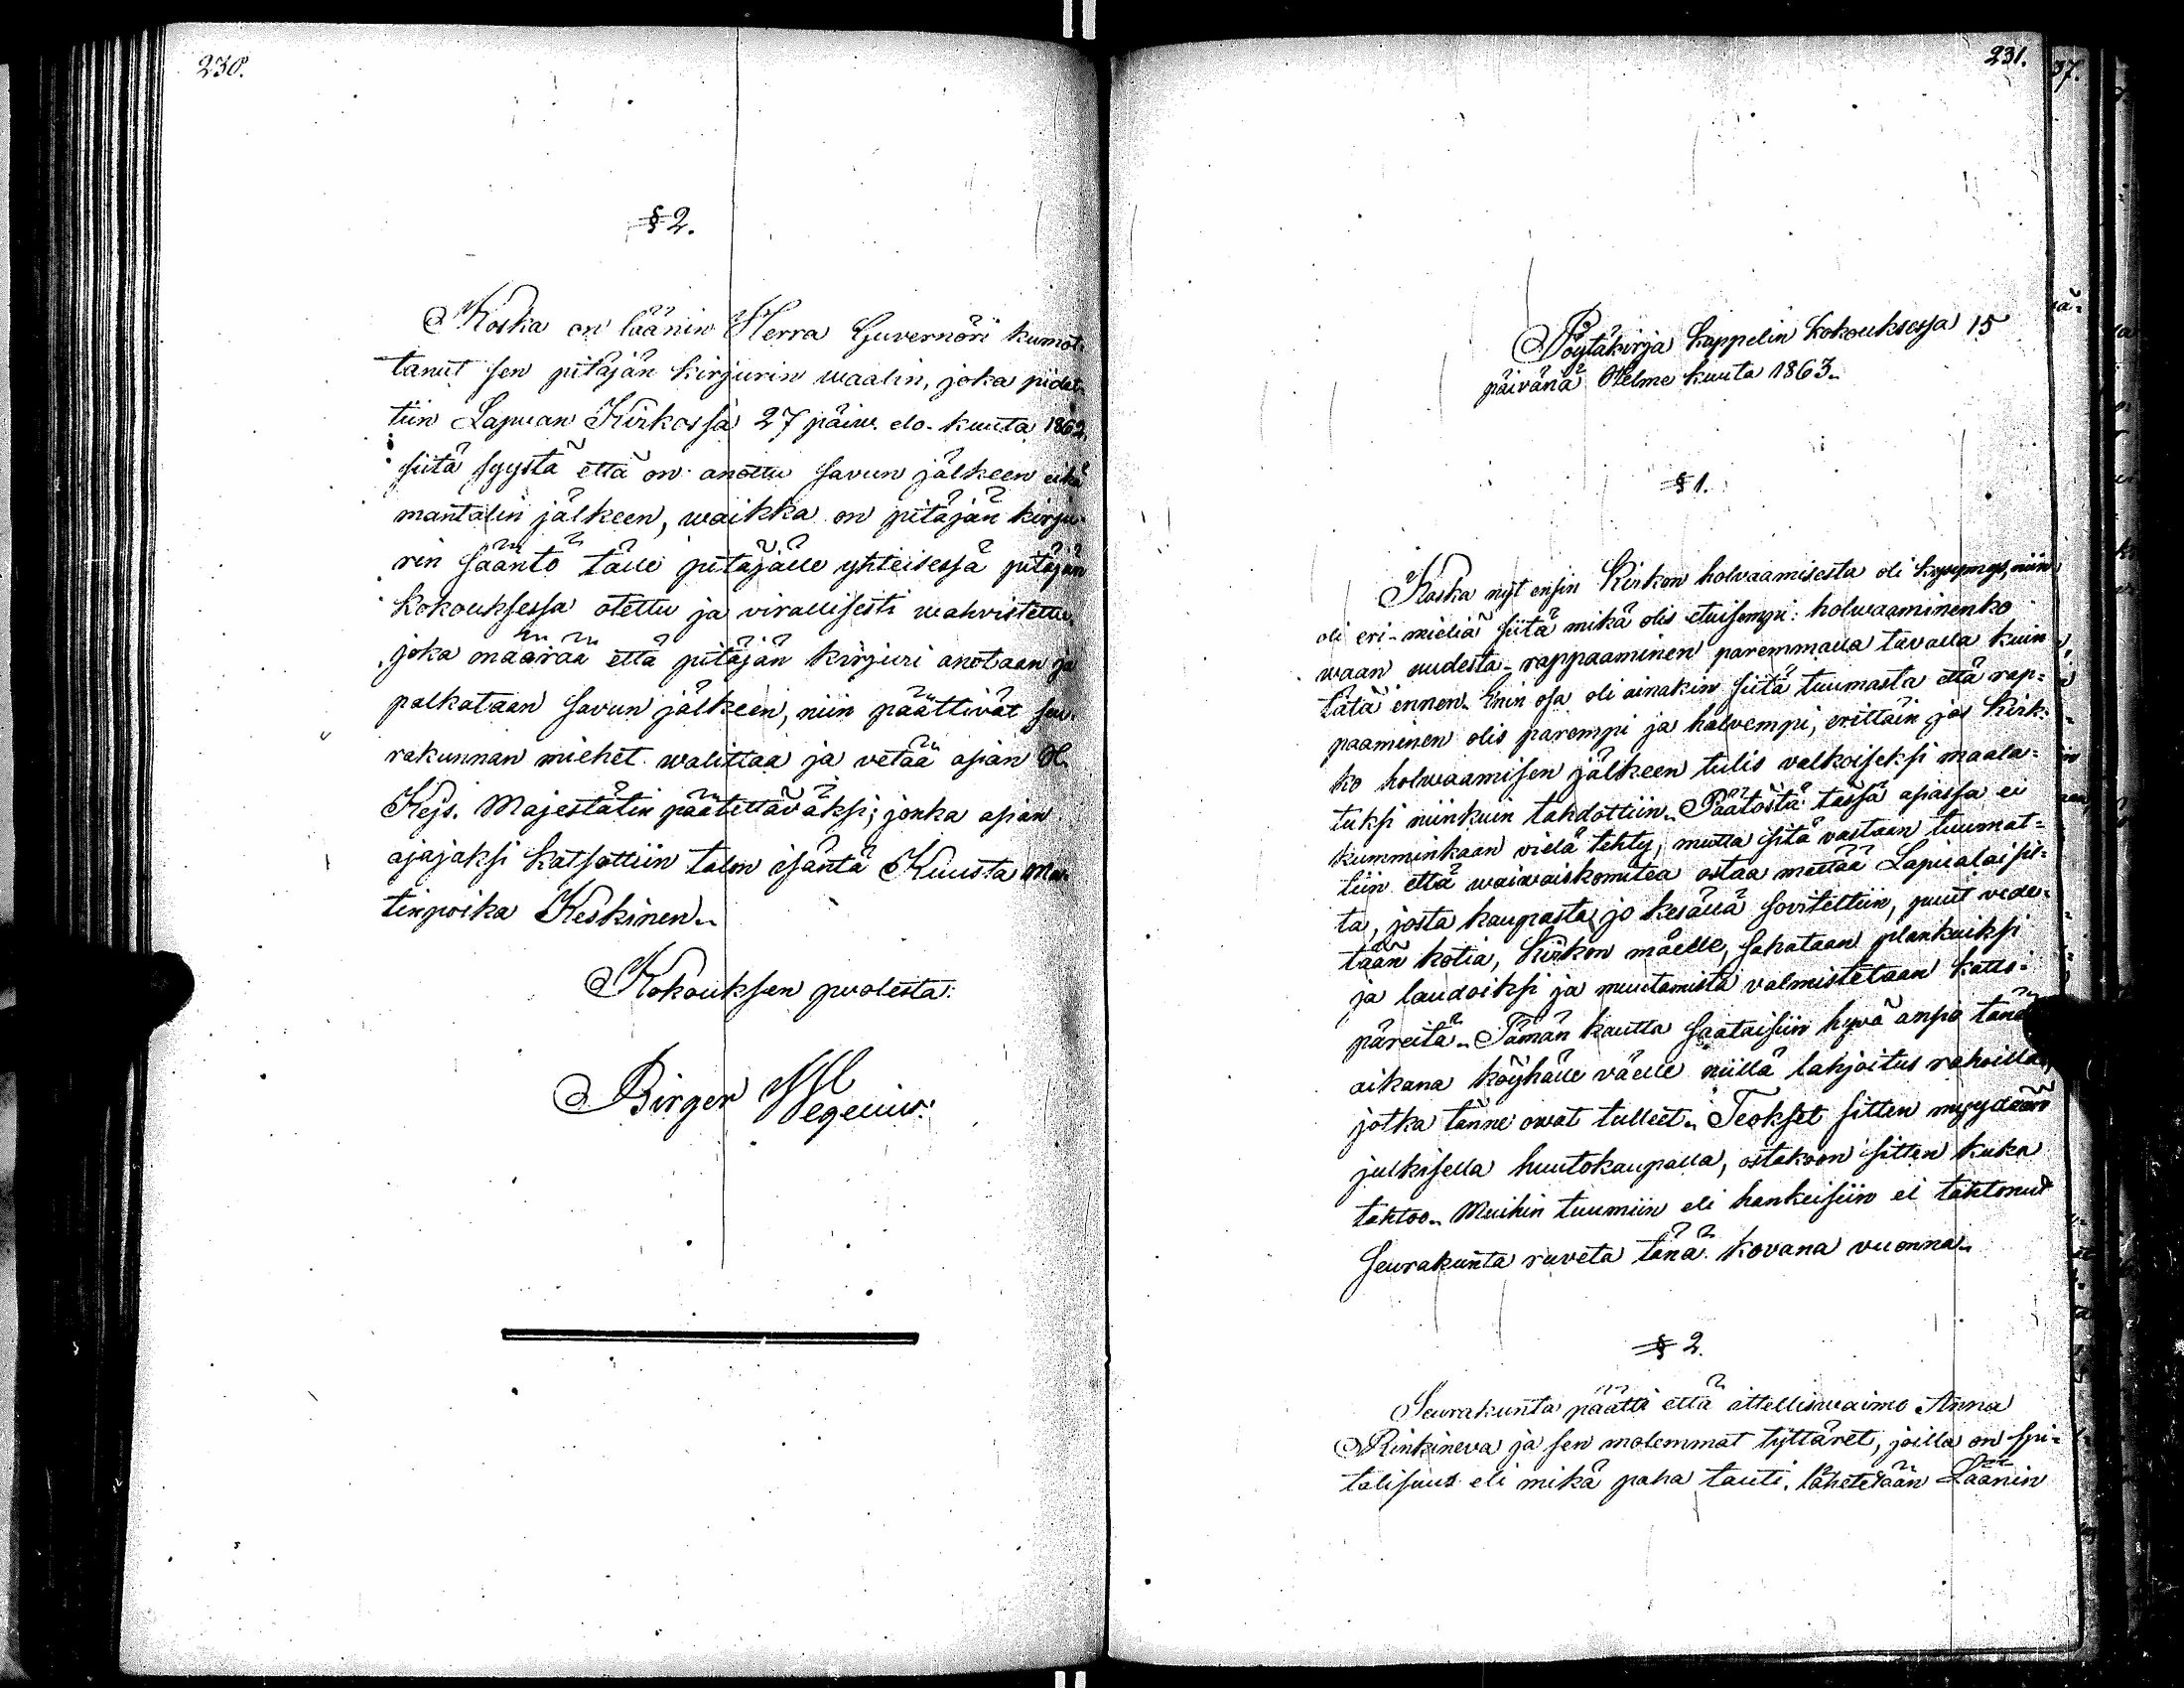 230.
§ 2.
Koska on läänin Herra Guvernöri kumot-
tanut sen pitäjän kirjurin waalin, joka pidet-
tiin Lapuan Kirkossa 27 päiw. elo-kuuta 1862,
siitä syystä että on anottu savun jälkeen eikä
mantalin jälkeen, waikka on pitäjän kirju-
rin sääntö tälle pitäjälle yhteisessä pitäjän
kokouksessa otettu ja virallisesti wahvistettu,
joka määrää että pitäjän kirjuri anotaan ja
palkataan savun jälkeen, niin päättivät seu-
rakunnan miehet walittaa ja vetää asian H.
Kejs. Majestätin päätettäväksi; jonka asian
ajajaksi katsottiin talon isäntä Kuusta Mat-
tinpoika Keskinen.
Kokouksen puolesta:
Birger Hegenius:
231.
Pöytäkirja kappelin kokouksessa 15
päivänä Helme kuuta 1863.
§ 1.
Koska nyt ensin Kirkon holvaamisesta oli kysymys, niin
oli eri-mieliä siitä mikä olis etuisempi: holwaaminenko
waan uudesta-rappaaminen paremmalla tavalla kuin
tätä ennen. Enin osa oli ainakin siitä tuumasta että rap-
paaminen olis parempi ja halvempi, erittäin jos kirk-
ko holwaamisen jälkeen tulis valkoiseksi maala-
tuksi niinkuin tahdottiin. Päätöstä tässä asiassa ei
kumminkaan vielä tehty, mutta sitä vastaan tuumat-
tiin että waiwaiskomitea ostaa mettää Lapualaisil-
ta, josta kaupasta jo kesällä soviteltiin, puut vede-
tään kotia, Kirkon mäelle, sahataan plankuiksi
ja laudoiksi ja muutamista valmistetaan katto-
päreitä. Tämän kautta saataisiin hyvä ansio tänä
aikana köyhälle väelle niillä lahjoitus rahoilla,
jotka tänne owat tulleet. Teokset sitten myydään
julkisella huutokaupalla, ostakoon sitten kuka
tahtoo. Muihin tuumiin eli hankeisiin ei tahtonut
Seurakunta ruveta tänä kovana vuonna.
§ 2.
Seurakunta päätti että ittellisvaimo Anna
Rinkineva ja sen molemmat tyttäret, joilla on spi-
talisuus eli mikä paha tauti, lähetetään Läänin